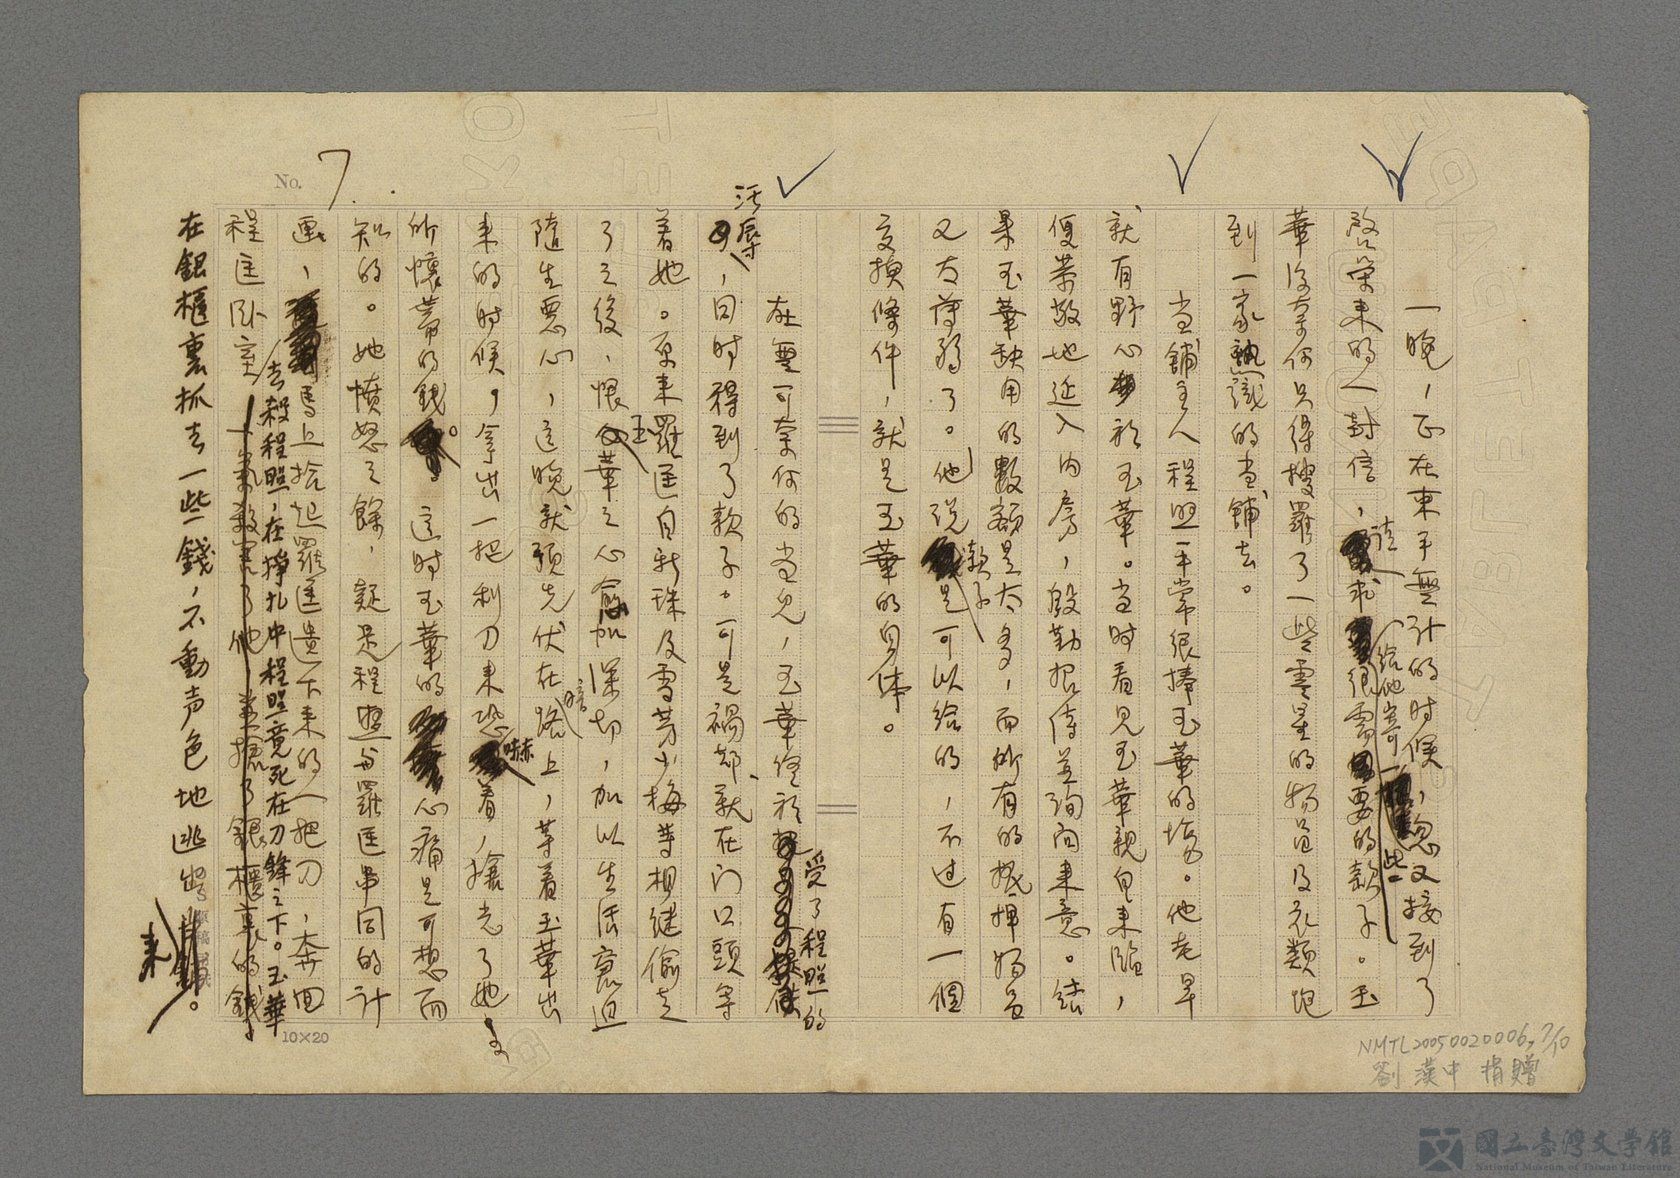 No. 7.
一晚，正在束手無計的时候，忽又接到了
啓榮来的一封信，請求給他寄一些很需要的款子。玉
華沒奈何只得搜羅了一些零星的物品及衣類抱
到一家熟識的当舖去。
当舖主人程照平常很捧玉華的場。他老早
就有野心於玉華。当时看見玉華親自来臨，
便恭敬地延入内房，殷勤招待並詢问来意。結
果玉華缺用的數額是太多，而所有的抵押物品
又太薄弱了。他說款子是可以给的，不过有一個
交換條件，就是玉華的身体。
在無可奈何的当兒，玉華終於受了程照的
汚辱，同时得到了款子。可是禍却就在门口頭等
着她。原来羅匡自新珠及雪芳小梅等相继偷走
了之後，恨玉華之心愈加深切，加以生活裏迫
隨生悪心，這晚就預先伏在暗路上，等着玉華出
来的时候，拿出一把利刀来恐嚇着，搶光了她
所懷帶的錢。這时玉華的心痛是可想而
知的。她憤怒之餘，疑是程照与羅匡串同的计
画，馬上拾起羅匡遗下来的一把刀，奔回
程匡卧室去殺程照，在掙扎中程照竟死在刀鋒之下。玉華
在銀櫃裏抓去一些錢，不動声色地逃出来。
10×20
NMTL20050020006, 7/10
劉漢中 捐贈
國立臺灣文學館
National Museum of Taiwan Literature